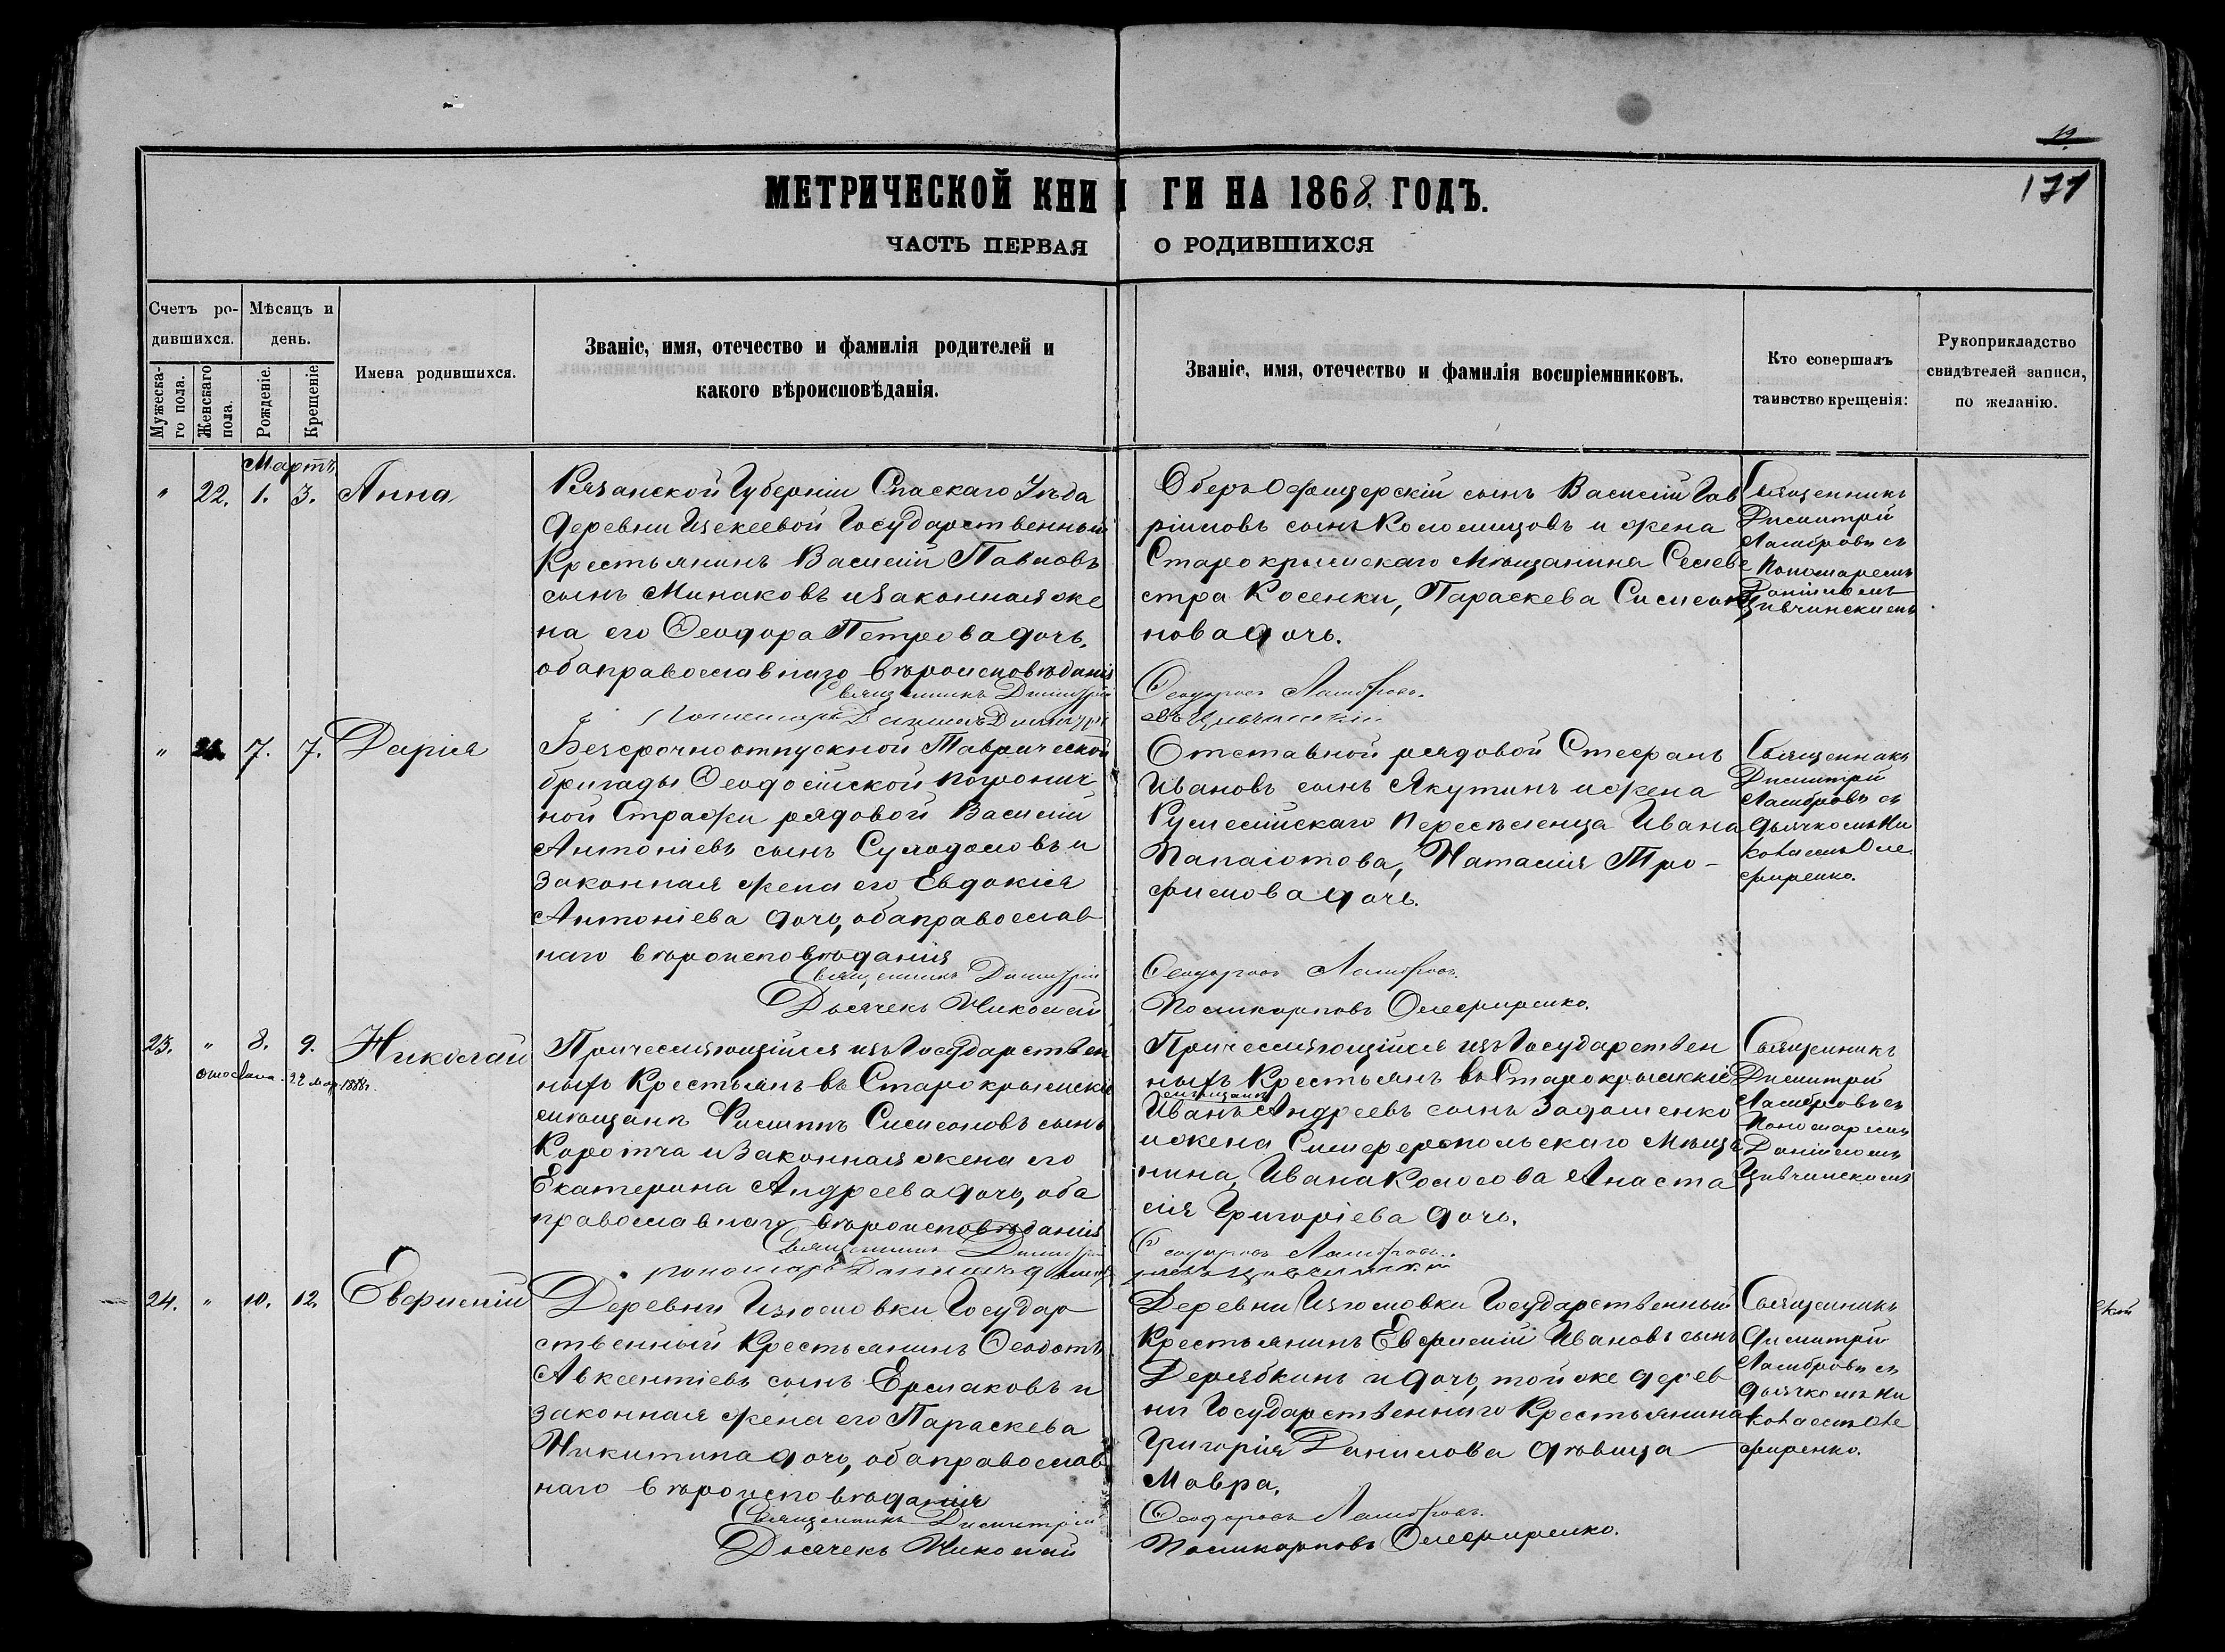 19
171
МЕТРИЧЕСКОЙ КНИ ГИ НА 1868. ГОДЪ.
ЧАСТЬ ПЕРВАЯ О РОДИВШИХСЯ
Счетъ ро-
дившихся.
Мѣсяцъ и
день.
Мужеска-
го пола.
Женскаго
пола.
Рожденіе.
Крещеніе
Имена родившихся.
Званіе, имя, отечество и фамилія родителей и
какого вѣроисповѣданія.
Званіе, имя, отечество и фамилія воспріемниковъ.
Кто совершалъ
таинство крещенія:
Рукоприкладство
свидѣтелей записи,
по желанію.
Мартъ
" 22. 1. 3. Анна
Рязанской Губерніи Спаскаго Уѣзда
деревни Ижекеевой Государственный
Крестьянинъ Василій Павловъ
сынъ Минаковъ и законная же
на его Ѳеодора Петрова дочь,
оба православнаго вѣроисповѣданія
Священникъ Димитрій
Пономарь Даніилъ Димитрі
Оберъ Офицерскій сынъ Василій Гав
ріиловъ сынъ Коломицовъ и жена
Старокрымскаго Мѣщанина Селеве
стра Косенки, Параскева Симеоно
нова дочь.
Ѳеодоровъ Ламбровъ.
евъ Цивчинскій
Священникъ
Димитрій
Ламбровъ съ
Пономаремъ
Даніиломъ
Цивчинскимъ
" 7. 7. Дарія
Безсрочноотпускной Таврической
бригады Ѳеодосійской погронич
ной Стражи рядовой Василій
Антоніевъ сынъ Суходоловъ и
законная жена его Евдокія
Антоніева дочь, оба православ
наго вѣроисповѣданія
Священникъ Димитрій
Дьячекъ Николай
Отставной рядовой Стефанъ
Ивановъ сынъ Якутинъ и жена
Румелійскаго Переселенца Ивана
Папаіотова, Наталія Тро-
фимова дочь.
Ѳеодоровъ Ламбровъ.
Поликарповъ Олефиренко.
Священникъ
Димитрій
Ламбровъ съ
дьячкомъ Ни
колаемъ Оле
фиренко.
23. " 8. 9. Николай
Причесляющійся изъ Государствен
ныхъ Крестьянъ въ Старокрымскіе
мѣщане Филиппъ Симеоновъ сынъ
Коротча и законная жена его
Екатерина Андреева дочь, оба
православнаго вѣроисповѣданія
Священникъ Димитрій
пономарь Даніилъ Димит
Причесляющійся изъ Государствен
ныхъ Крестьянъ въ Старокрымскіе
мѣщане
Иванъ Андреевъ сынъ Задошенко
и жена Симферопольскаго Мѣща
нина, Ивана Колосова Анаста
сія Григоріева дочь.
Ѳеодоровъ Ламбровъ.
Священникъ
Димитрій
Ламбровъ съ
Пономаремъ
Даніиломъ
Цивчинскимъ
24. " 10. 12. Евфимій
Деревни Изюмовки Государ
ственный Крестьянинъ Ѳеодотъ
Авксентіевъ сынъ Ермаковъ и
законная жена его Параскева
Никитина дочь, оба православ
наго вѣроисповѣданія
Священникъ Димитрій
Дьячекъ Николай
Деревни Изюмовки Государственный
Крестьянинъ Евфимій Ивановъ сынъ
Дерябкинъ и дочь, той же дерев
ни Государственнаго Крестьянина
Григорія Данилова дѣвица
Мавра.
Ѳеодоровъ Ламбровъ.
Поликарповъ Олефиренко.
Священникъ
Димитрій
Ламбровъ съ
дьячкомъ Ни
колаемъ Оле
фиренко.